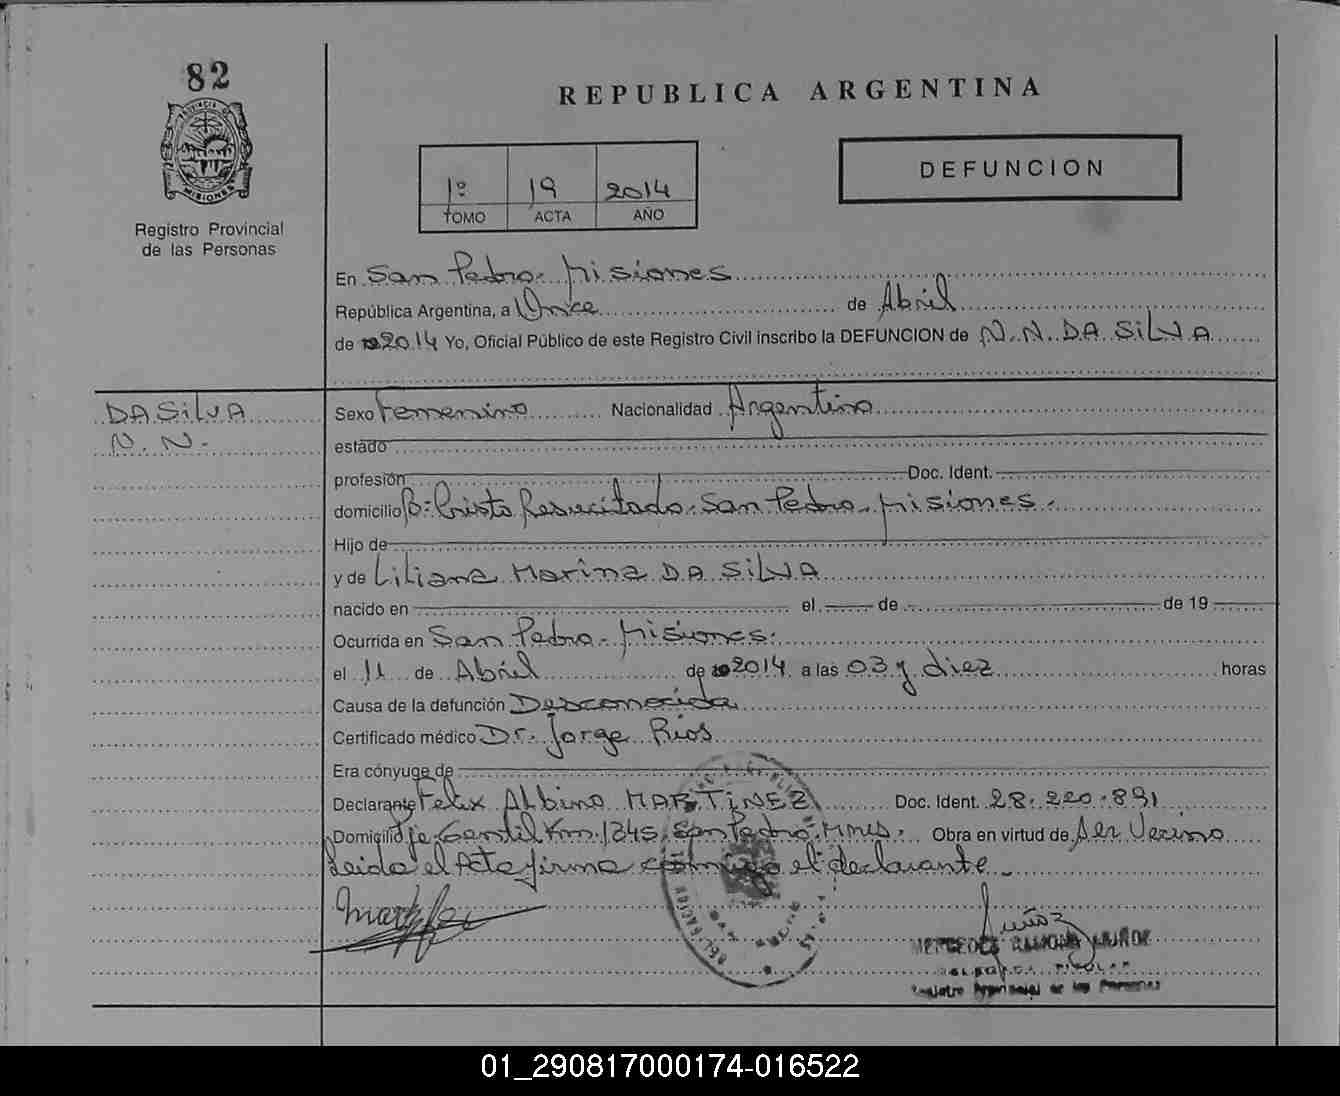 82
REPUBLICA ARGENTINA
PROVINCIA DE
MISIONES
Registro Provincial
de las Personas
1º 19 2014
TOMO ACTA AÑO
DEFUNCION
En San Pedro. Misiones
República Argentina, a Once de Abril
de 2014 Yo, Oficial Público de este Registro Civil inscribo la DEFUNCION de N. N. DA SILVA
DA SILVA
N. N.-
Sexo Femenino Nacionalidad Argentina
estado
profesión Doc. Ident.
domicilio Bº Cristo Resucitado. San Pedro. Misiones.
Hijo de
y de Liliana Marina DA SILVA
nacido en el de de 19
Ocurrida en San Pedro. Misiones.
el 11 de Abril de 2014 a las 03 y diez horas
Causa de la defunción Desconocida
Certificado médico Dr. Jorge Rios
Era cónyuge de
Declarante Felix Albino MARTINEZ Doc. Ident. 28.220.891
Domicilio Pje. Gentil Km. 1245. San Pedro. Mnes. Obra en virtud de Ser Vecino
Leida el Acta firma conmigo el declarante.-
MERCEDES RAMONA MUÑOZ
Registro Provincial de las Personas
01_290817000174-016522